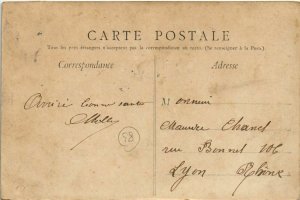 CARTE POSTALE
Tous les pays étrangers n'acceptent pas la correspondance au recto. (Se renseigner à la Poste.)
Correspondance
Adresse
Arrivée bonne santé
Monsieur
Maurice Chanel
rue Bonnel 106
Lyon Rhône